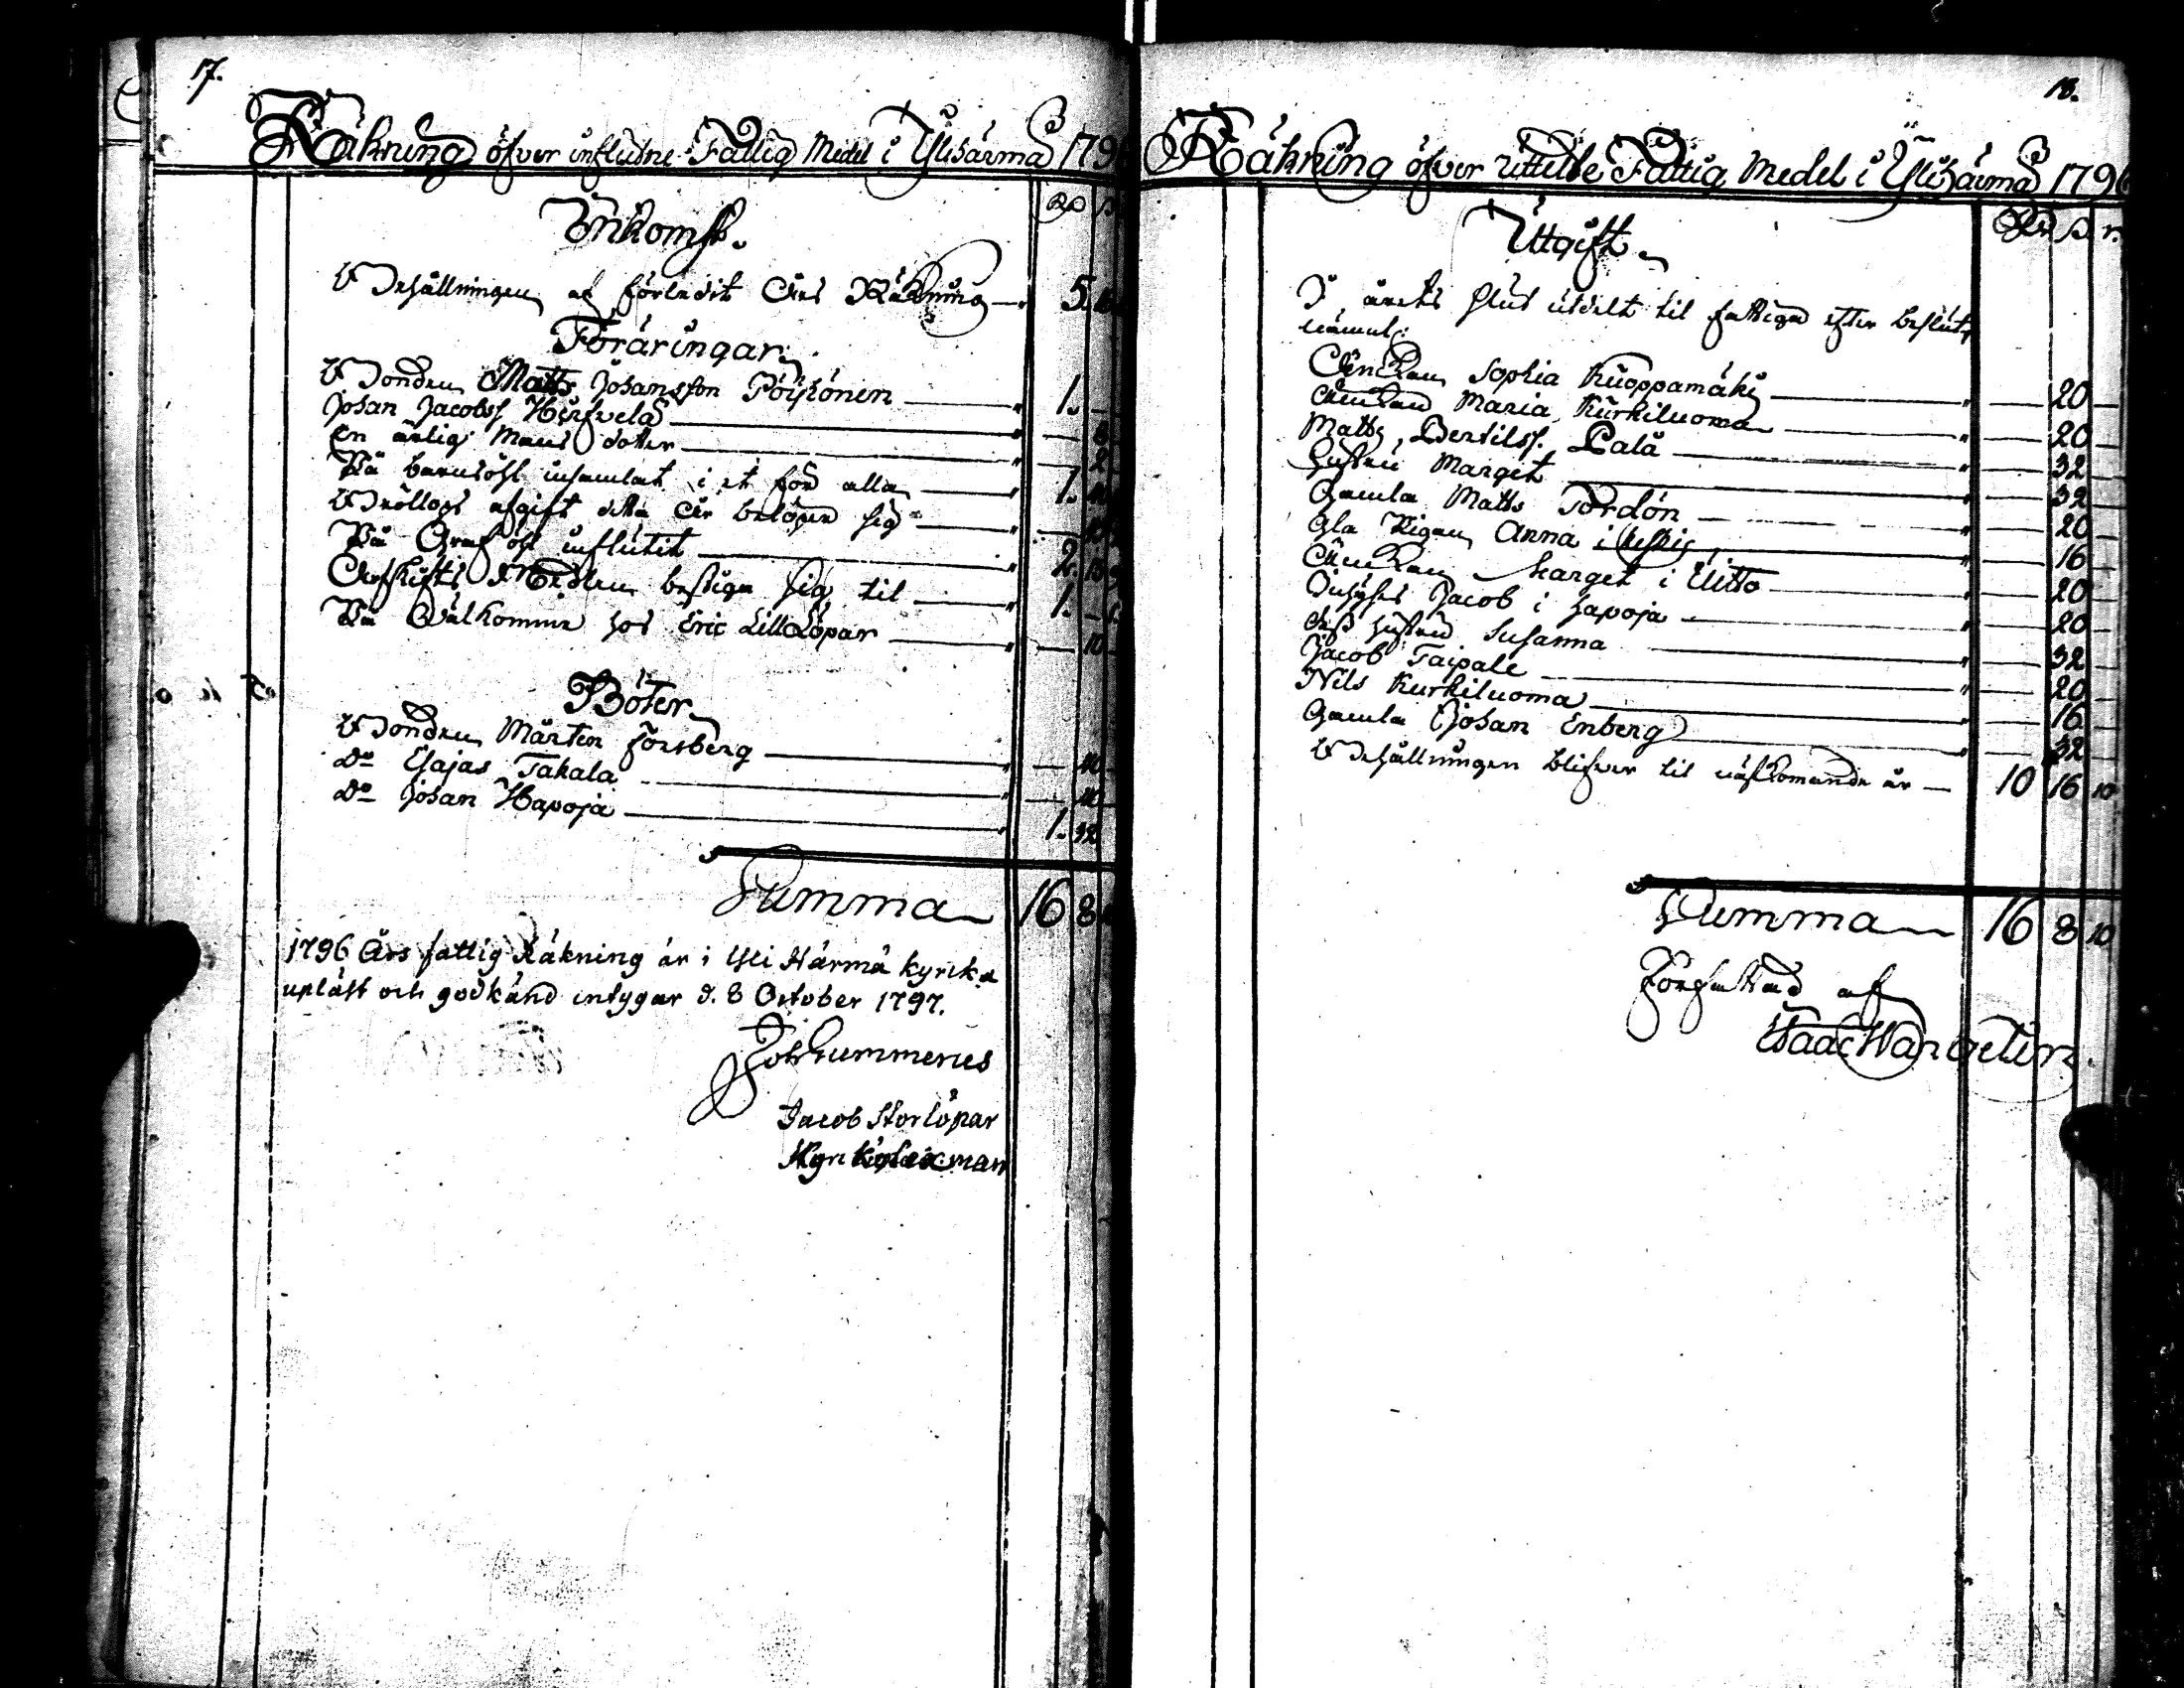 17.
Räkning öfver influtne Fattig Medel i Ylihärmä 1796
Inkomst.
Rd s
Behållningen af förledit Års Räkning 5.
Föräringar.
Bonden Matts Johansson Pöyhönen 1. —
Johan Jacobss. Hirfvelä — 8
En ärlig Mans dotter — 2
På barnsöhl insamlat i et för alla 1.
Bröllops afgift detta År belöper sig —
På Graföhl influtit 2. 15
Afskifts Medlen bestiga sig til 1. —
På Välkomme hos Eric LillLöpar — 10
Böter
Bonden Mårten Forsberg —
Do Esajas Takala —
Do Johan Hapoja 1. 32
Summa 16 8
1796 Års fattig Räkning är i Yli Härmä kyrcka
upläst och godkänd intygar d. 8 October 1797.
Joh Gummerus
Jacob Storlöpar
18.
Räkning öfver Uttelte Fattig Medel i Ylihärmä 1796
Utgift
Rd s r.
I årets slut utdelt til fattiga efter beslut,
nämnl:
Änckan Sophia Kuoppamäki — 20 —
Änckan Maria Kurkiluoma — 20 —
Matts Bertilss. Pala — 32 —
Hustru Marget — 32 —
Gamla Matts Tordön — 20 —
Gla Pigan Anna i — 16 —
Änckan Marget i Uitto — 20 —
Inhyses Jacob i Hapoja — 20 —
dess hustru Susanna — 32 —
Jacob Taipale — 20 —
Nils Kurkiluoma — 16 —
Gamla Johan Enberg — 32 —
Behållningen blifver til näskomande år — 10 16 10
Summa 16 8 10
Författad af
Isaac Wangelin.